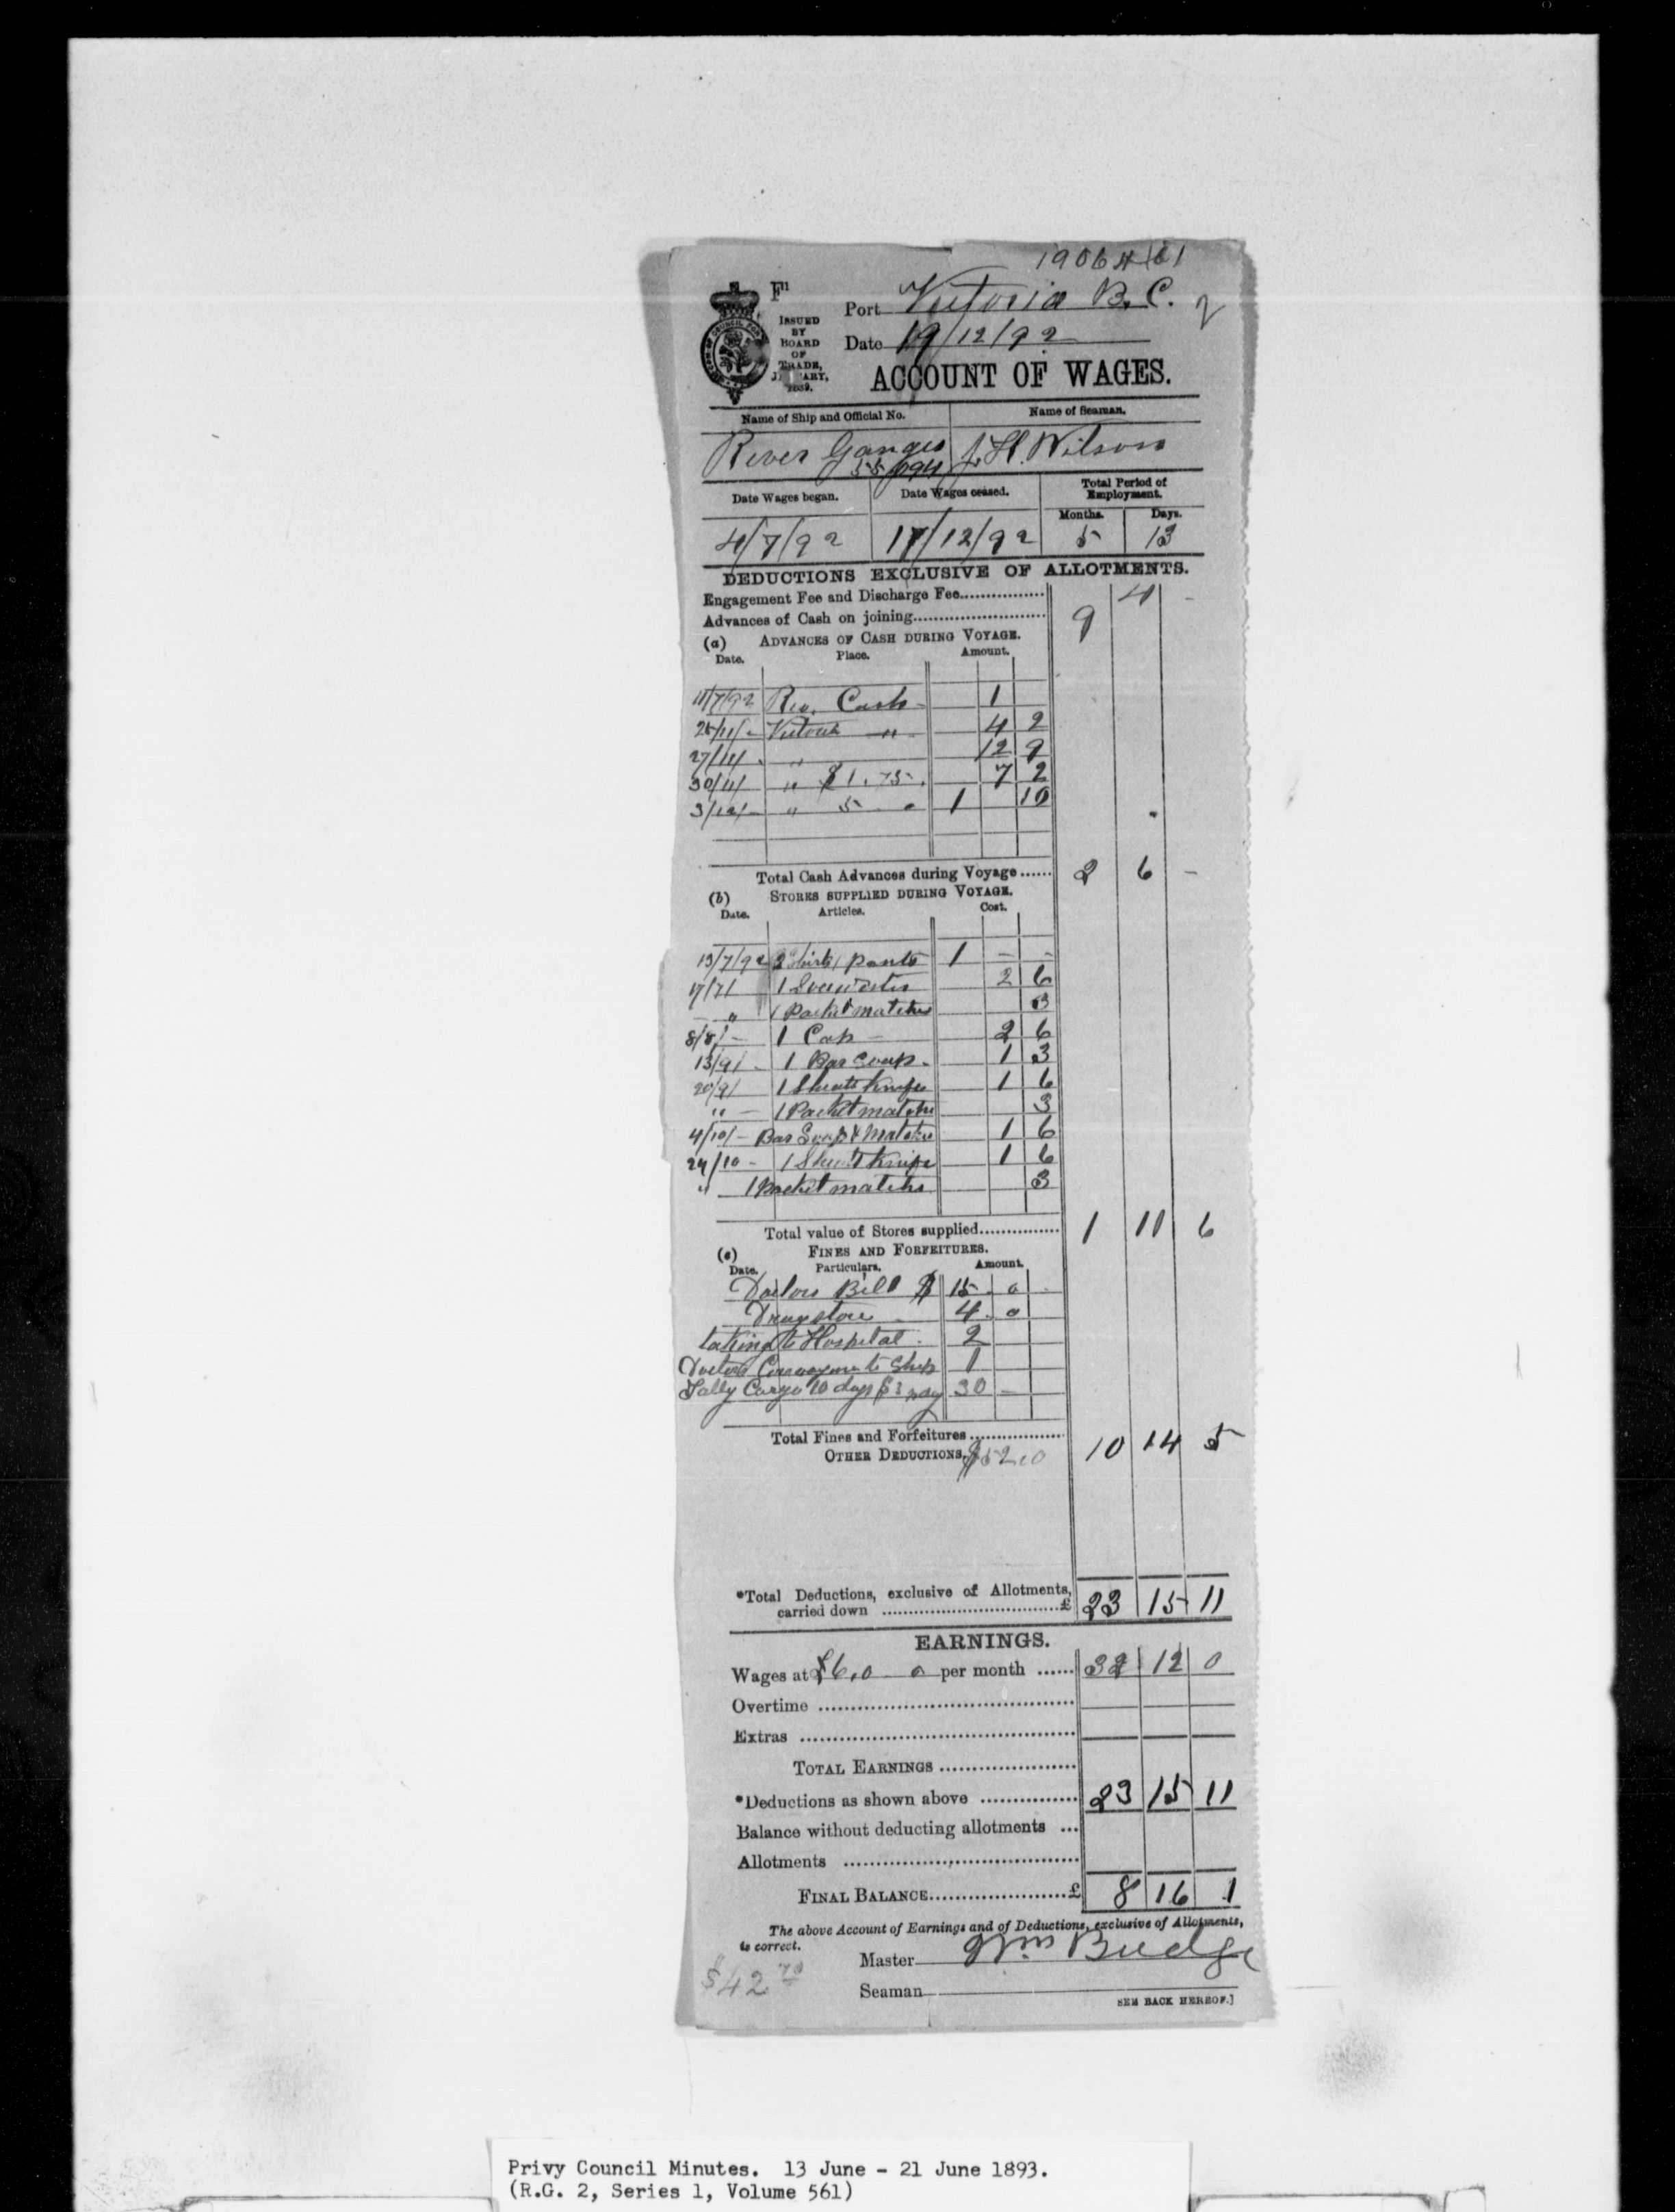 1906 H 61
F11
Port Victoria B.C. 2
ISSUED
BY
BOARD
OF
TRADE,
Date 19/12/92
ACCOUNT OF WAGES.
Name of Ship and Official No. Name of Seaman.
River Ganges J. H. Wilson
Date Wages began. Date Wages ceased. Total Period of Employment.
Months. Days.
4/7/92 17/12/92 5 13
DEDUCTIONS EXCLUSIVE OF ALLOTMENTS.
Engagement Fee and Discharge Fee 4 -
Advances of Cash on joining 9
(a) ADVANCES OF CASH DURING VOYAGE.
Date. Place. Amount.
11/7/92 Cash 1
25/11/- Victoria " 4 2
27/11/ " 12 9
30/11/ " $1.75 7 2
3/12/- " 5 1 10
Total Cash Advances during Voyage 2 6 -
(b) STORES SUPPLIED DURING VOYAGE.
Date. Articles. Cost.
13/7/92 Shirts pants 1 - -
17/7/ 1 2 6
" 1 Packet matches 3
8/8/- 1 Cap 2 6
13/9/- 1 Bar Soap 1 3
20/9/ 1 Sheath Knife 1 6
" - 1 Packet matches 3
4/10/- Bar Soap & Matches 1 6
24/10 - 1 Sheath Knife 1 6
" 1 Packet matches 3
Total value of Stores supplied 1 11 6
(c) FINES AND FORFEITURES.
Date. Particulars. Amount.
Doctors Bill $ 15. 0
Drugstore 4. 0
taking to Hospital. 2
Doctors to Ship 1
Tally Cargo 10 days $3 day 30 -
Total Fines and Forfeitures 10 14 5
OTHER DEDUCTIONS. $52.0
*Total Deductions, exclusive of Allotments,
carried down £ 23 15 11
EARNINGS.
Wages at £6.0 0 per month 32 12 0
Overtime
Extras
TOTAL EARNINGS
*Deductions as shown above 23 15 11
Balance without deducting allotments ...
Allotments
FINAL BALANCE £ 8 16 1
The above Account of Earnings and of Deductions, exclusive of Allotments,
is correct.
Master Wm Budge
$42.70
Seaman
SEE BACK HEREOF.]
Privy Council Minutes. 13 June - 21 June 1893.
(R.G. 2, Series 1, Volume 561)